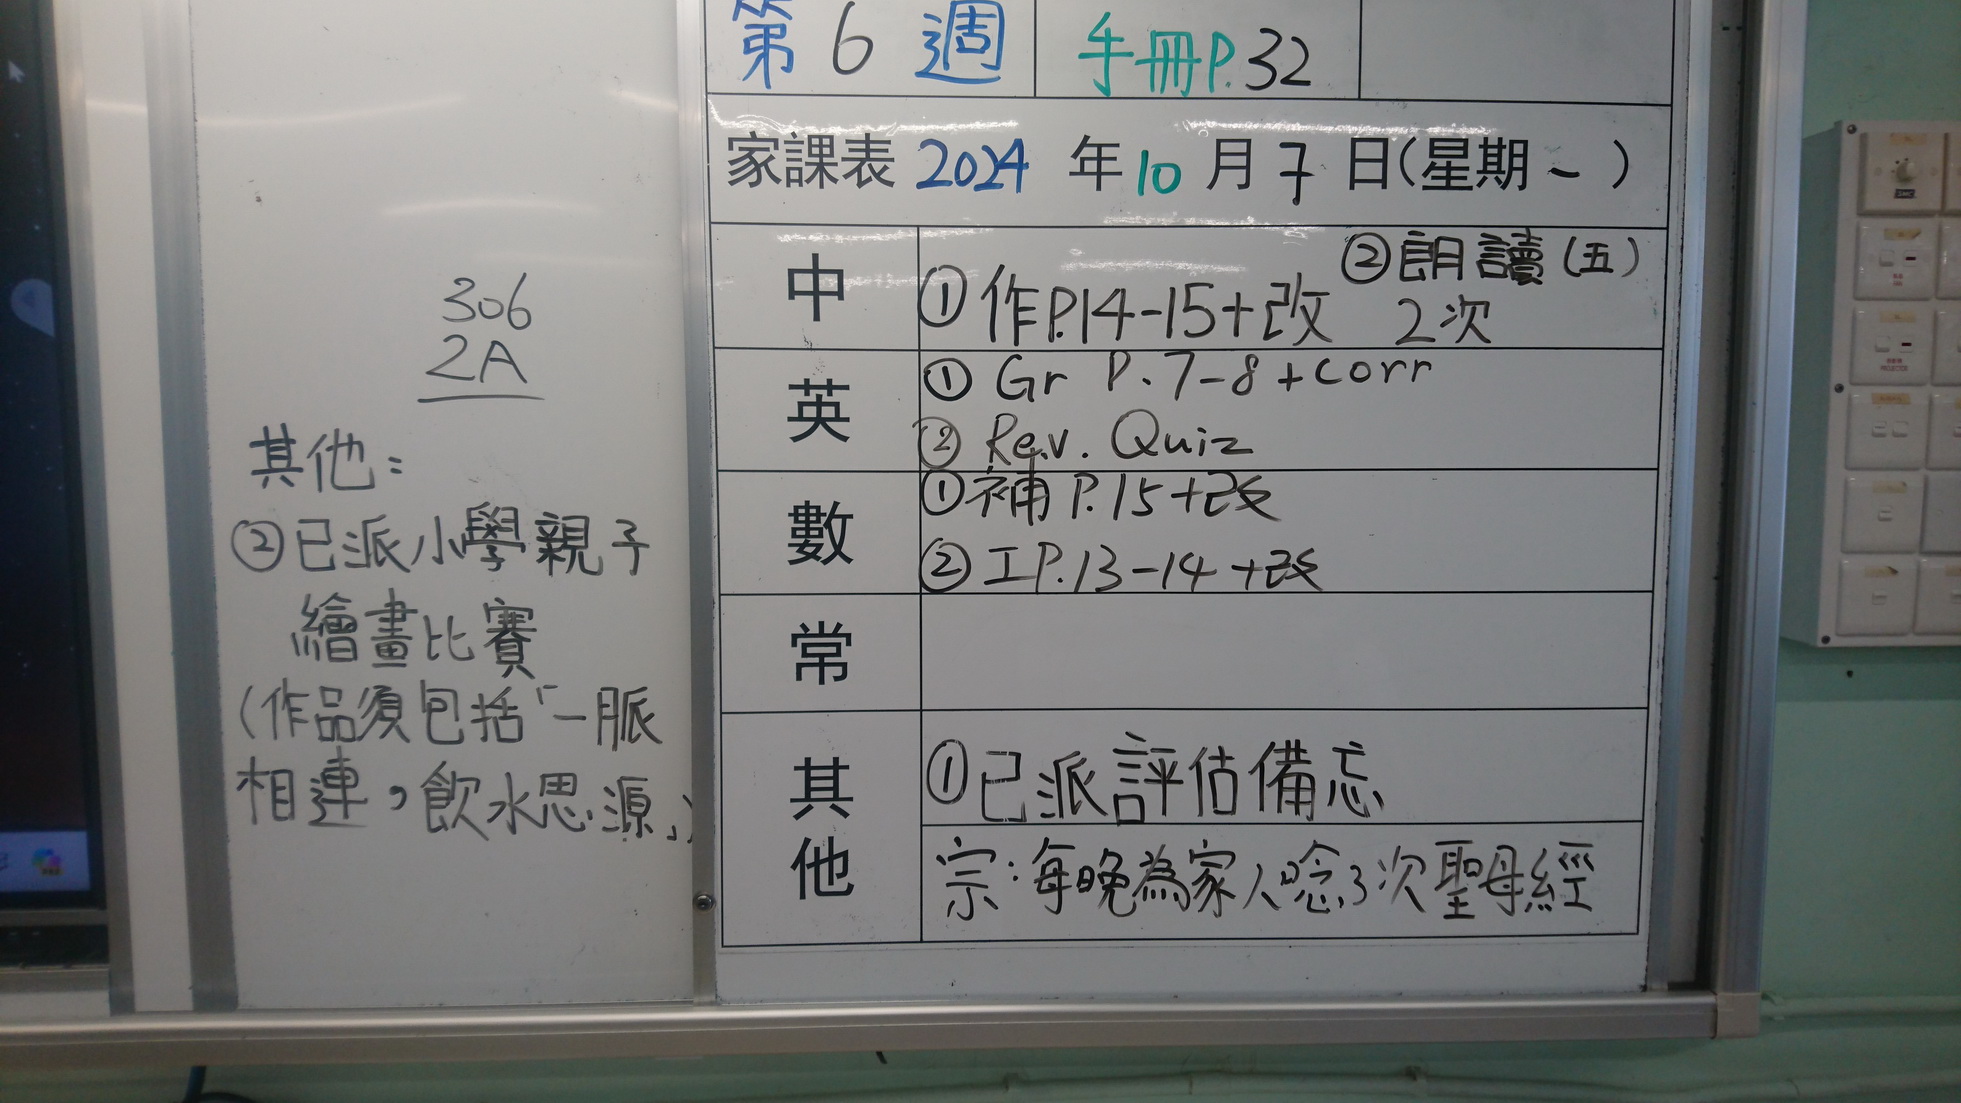 第6週
手冊P.32
家課表 2024 年 10 月 7 日(星期一)
中
①作P.14-15+改
②朗讀(五)
2次
英
① Gr P.7-8+corr
② Rev. Quiz
數
①補P.15+改
②工P.13-14+改
常
其他
①已派評估備忘
宗:每晚為家人唸3次聖母經
306
2A
其他:
②已派小學親子
繪畫比賽
(作品須包括「一脈
相連,飲水思源」)